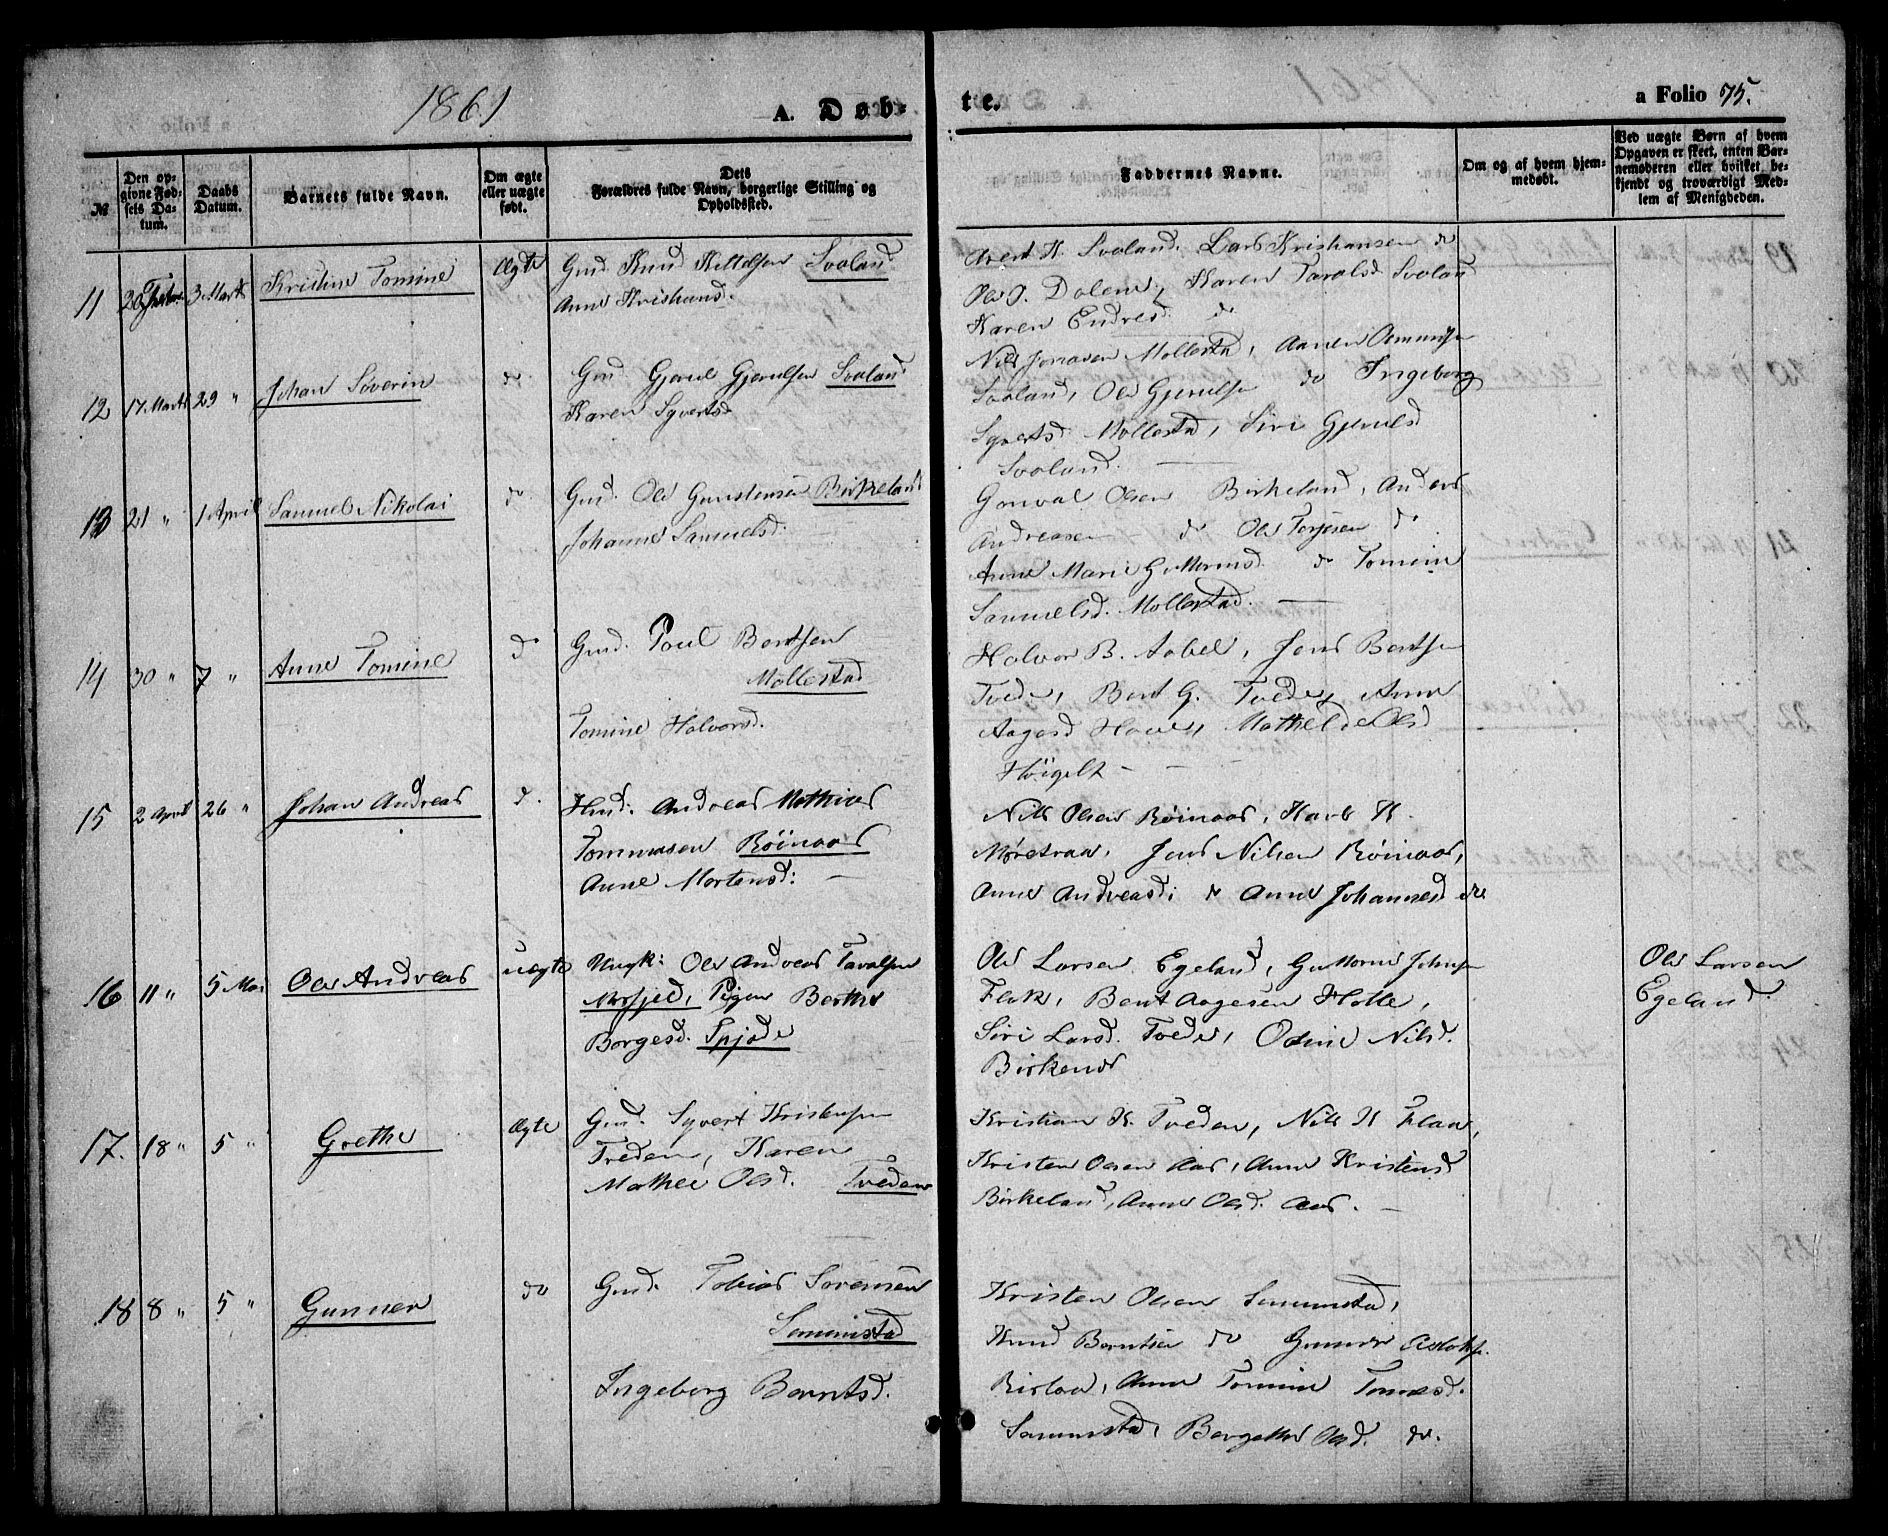 1861
A. Døb-
te.
a Folio 75.
№
Den op-
givne Fød-
sels Da-
tum.
Daabs
Datum.
Barnets fulde Navn.
Om ægte
eller uægte
født.
Dets
Forældres fulde Navn, borgerlige Stilling og
Opholdssted.
Faddernes Navne.
Om og af hvem hjem-
medøbt.
Ved uægte Børn af hvem
Opgaven er skeet, enten Bar-
nemoderen eller hvilket be-
kjendt og troværdigt Med-
lem af Menigheden.
11 3 Marts Kristine Tomine Ægte Gmd. Knud Kittelsen Svoland
Anne Kristiansd.
H. Svoland. Lars Kristiansen do
Ole O. Dalene, Karen Taralsd Svoland
Karen Endresd. do
12 17 Marts 29 " Johan Severin do. Gmd Gjeruel Gjeruelsen Svoland
Karen Syvertsd
Nils Jonassen Mollestad, Aanen Osmundsen
Svoland, Ole Gjeruelsen do Ingeborg
Syvertsd. Mollestad, Siri Gjeruelsd
Svoland.
13 21 " 1 April Samuel Nikolai do. Gmd. Ole Gunstensen Birkeland
Johanne Samuelsd.
Gonval Olsen Birkeland, Anders
Andreasen do Ole Terjesen do
Anne Marie Guttormsd. do Tomine
Samuelsd. Mollestad.
14 30 " 7 " Anne Tomine do Gmd. Poul Bentsen
Mollestad
Tomine Halvorsd.
Halvor B. Aabel, Jens Bentsen
Tvede, Bent G. Tvede, Anne
Aagesd Hove, Mathilde Olsd
Høigilt
15 2 April 26 " Johan Andreas d. Hmd. Andreas Mathias
Tommasen Röinaas
Anne Mortensd:
Nils Olsen Röinaas, Karl K.
Møretraa, Jens Nilsen Röinaas,
Anne Andreasd: do Anne Johannesd do
16 11 " 5 Mai Ole Andreas uægte Ungk: Ole Andreas Taralsen
Mosfjeld, Pigen Berthe
Borgesd. Spjode
Ole Larsen Egeland, Guttorm Johnsen
Flak, Bent Aagesen Holte,
Siri Larsd. Tvede, Odine Nilsd.
Birkenes
Ole Larsen
Egeland.
17. 18 " 5 " Grethe Ægte Gmd. Syvert Kristensen
Treden, Karen
Mathee Olsd. Tveden
Kristian K. Tveden, Nils K Flaa,
Kristen Olsen Aas, Anne Kristensd
Birkeland, Anne Olsd. Aas.
18 8 " 5 " Gunner do Gmd. Tobias Sørensen
Senumstad
Ingeborg Berntsd.
Kristen Olsen Senumstad,
Knud Berntsen do Gunner Aslaks.
Rislaa, Anne Tomine Tomesd.
Senumstad, Bergitte Olsd. do.